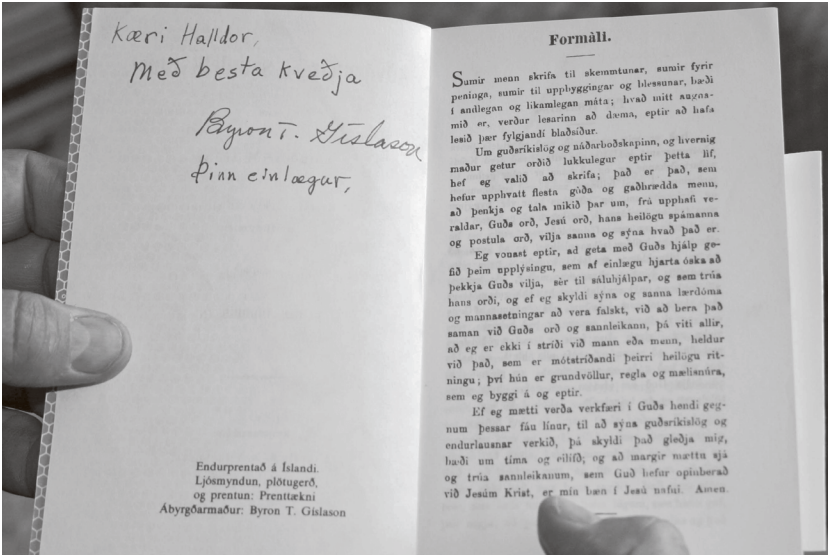 Kæri Halldor,
Með besta kveðja
Byron T. Gíslason
Þinn einlægur,
Endurprentað á Íslandi.
Ljósmyndun, plötugerð,
og prentun: Prenttækni
Ábyrgðarmaður: Byron T. Gíslason
Formàli.
Sumir menn skrifa til skemmtunar, sumir fyrir
peninga, sumir til uppbyggingar og blessunar, bæði
í andlegan og líkamlegan máta; hvað mitt augna-
mið er, verður lesarinn að dæma, eptir að hafa
lesið þær fylgjandi blaðsíður.
Um guðsríkislög og náðarboðskapinn, og hvernig
maður getur orðið lukkulegur eptir þetta líf,
hef eg valið að skrifa; það er það, sem
hefur upphvatt flesta góða og guðhrædda menn,
að þenkja og tala mikið þar um, frá upphafi ve-
raldar, Guðs orð, Jesú orð, hans heilögu spámanna
og postula orð, vilja sanna og sýna hvað það er.
Eg vonast eptir, að geta með Guðs hjálp ge-
fið þeim upplýsingu, sem af einlægu hjarta óska að
þekkja Guðs vilja, sèr til sáluhjálpar, og sem trúa
hans orði, og ef eg skyldi sýna og sanna lærdóma
og mannasetningar að vera falskt, við að bera það
saman við Guðs orð og sannleikann, þá viti allir,
að eg er ekki í stríði við mann eða menn, heldur
við það, sem er mótstríðandi þeirri heilögu rit-
ningu; því hún er grundvöllur, regla og mælisnúra,
sem eg byggi á og eptir.
Ef eg mætti verða verkfæri í Guðs hendi geg-
num þessar fáu línur, til að sýna guðsríkislög og
endurlausnar verkið, þá skyldi það gleðja mig,
bæði um tíma og eilífð; og að margir mættu sjá
og trúa sannleikanum, sem Guð hefur opinberað
við Jesúm Krist, er mín bæn í Jesú nafni. Amen.